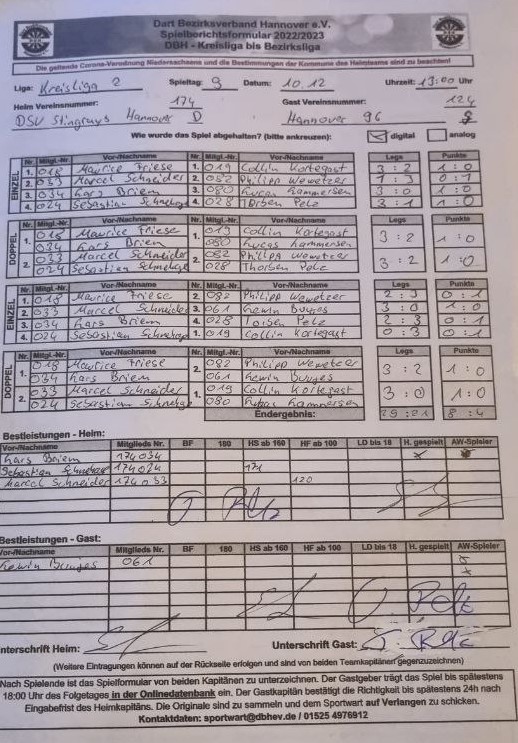 Dart Bezirksverband Hannover e.V.
Spielberichtsformular 2022/2023
DBH - Kreisliga bis Bezirksliga
Die geltende Corona-Verordnung Niedersachsens und die Bestimmungen der Kommune des Heimteams sind zu beachten!
Liga: Kreisliga 2 Spieltag: 9 Datum: 10.12 Uhrzeit: 19:00 Uhr
Heim Vereinsnummer: 174 Gast Vereinsnummer: 124
DSV Stingrays Hannover D Hannover 96
Wie wurde das Spiel abgehalten? (bitte ankreuzen): digital analog
EINZEL Nr. Mitgl.-Nr. Vor-/Nachname Nr. Mitgl.-Nr. Vor-/Nachname Legs Punkte
1. 018 Maurice Friese 1. 019 Collin Kortegast 3 : 2 1 : 0
2. 033 Marcel Schneider 2. 082 Philipp Wewetzer 1 : 3 0 : 1
3. 034 Lars Briem 3. 080 Lucas Kammersen 3 : 0 1 : 0
4. 024 Sebastian 4. 028 Torben Pelz 3 : 1 1 : 0
DOPPEL Nr. Mitgl.-Nr. Vor-/Nachname Nr. Mitgl.-Nr. Vor-/Nachname Legs Punkte
1. 018 Maurice Friese 1. 019 Collin Kortegast 3 : 2 1 : 0
034 Lars Briem 080 Lucas Kammersen
2. 033 Marcel Schneider 2. 082 Philipp Wewetzer 3 : 2 1 : 0
024 Sebastian 028 Thorben Pelz
EINZEL Nr. Mitgl.-Nr. Vor-/Nachname Nr. Mitgl.-Nr. Vor-/Nachname Legs Punkte
1. 018 Maurice Friese 2. 082 Philipp Wewetzer 2 : 3 0 : 1
2. 033 Marcel Schneider 3. 061 Kewin 3 : 0 1 : 0
3. 034 Lars Briem 4. 028 Torben Pelz 2 : 3 0 : 1
4. 024 Sebastian 1. 019 Collin Kortegast 0 : 3 0 : 1
DOPPEL Nr. Mitgl.-Nr. Vor-/Nachname Nr. Mitgl.-Nr. Vor-/Nachname Legs Punkte
1. 018 Maurice Friese 2. 082 Philipp Wewetzer 3 : 2 1 : 0
034 Lars Briem 061 Kewin
2. 033 Marcel Schneider 1. 019 Collin Kortegast 3 : 0 1 : 0
024 Sebastian 080 Kammersen
Endergebnis: 29 : 21 8 : 4
Bestleistungen - Heim:
Vor-/Nachname Mitglieds Nr. BF 180 HS ab 160 HF ab 100 LD bis 18 H. gespielt AW-Spieler
Lars Briem 174034 x
Sebastian 174024 174
Marcel Schneider 174033 120
Bestleistungen - Gast:
Vor-/Nachname Mitglieds Nr. BF 180 HS ab 160 HF ab 100 LD bis 18 H. gespielt AW-Spieler
Kewin 061 x
x
Unterschrift Heim: Unterschrift Gast:
(Weitere Eintragungen können auf der Rückseite erfolgen und sind von beiden Teamkapitänen gegenzuzeichnen)
Nach Spielende ist das Spielformular von beiden Kapitänen zu unterzeichnen. Der Gastgeber trägt das Spiel bis spätestens
18:00 Uhr des Folgetages in der Onlinedatenbank ein. Der Gastkapitän bestätigt die Richtigkeit bis spätestens 24h nach
Eingabefrist des Heimkapitäns. Die Originale sind zu sammeln und dem Sportwart auf Verlangen zu schicken.
Kontaktdaten: sportwart@dbhev.de / 01525 4976912